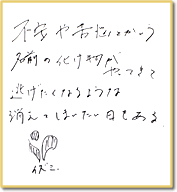 不安や苦悩とかいう
名前の化け物が
やってきて
逃げたくなるような
消えてしまいたい日もある
イズミ